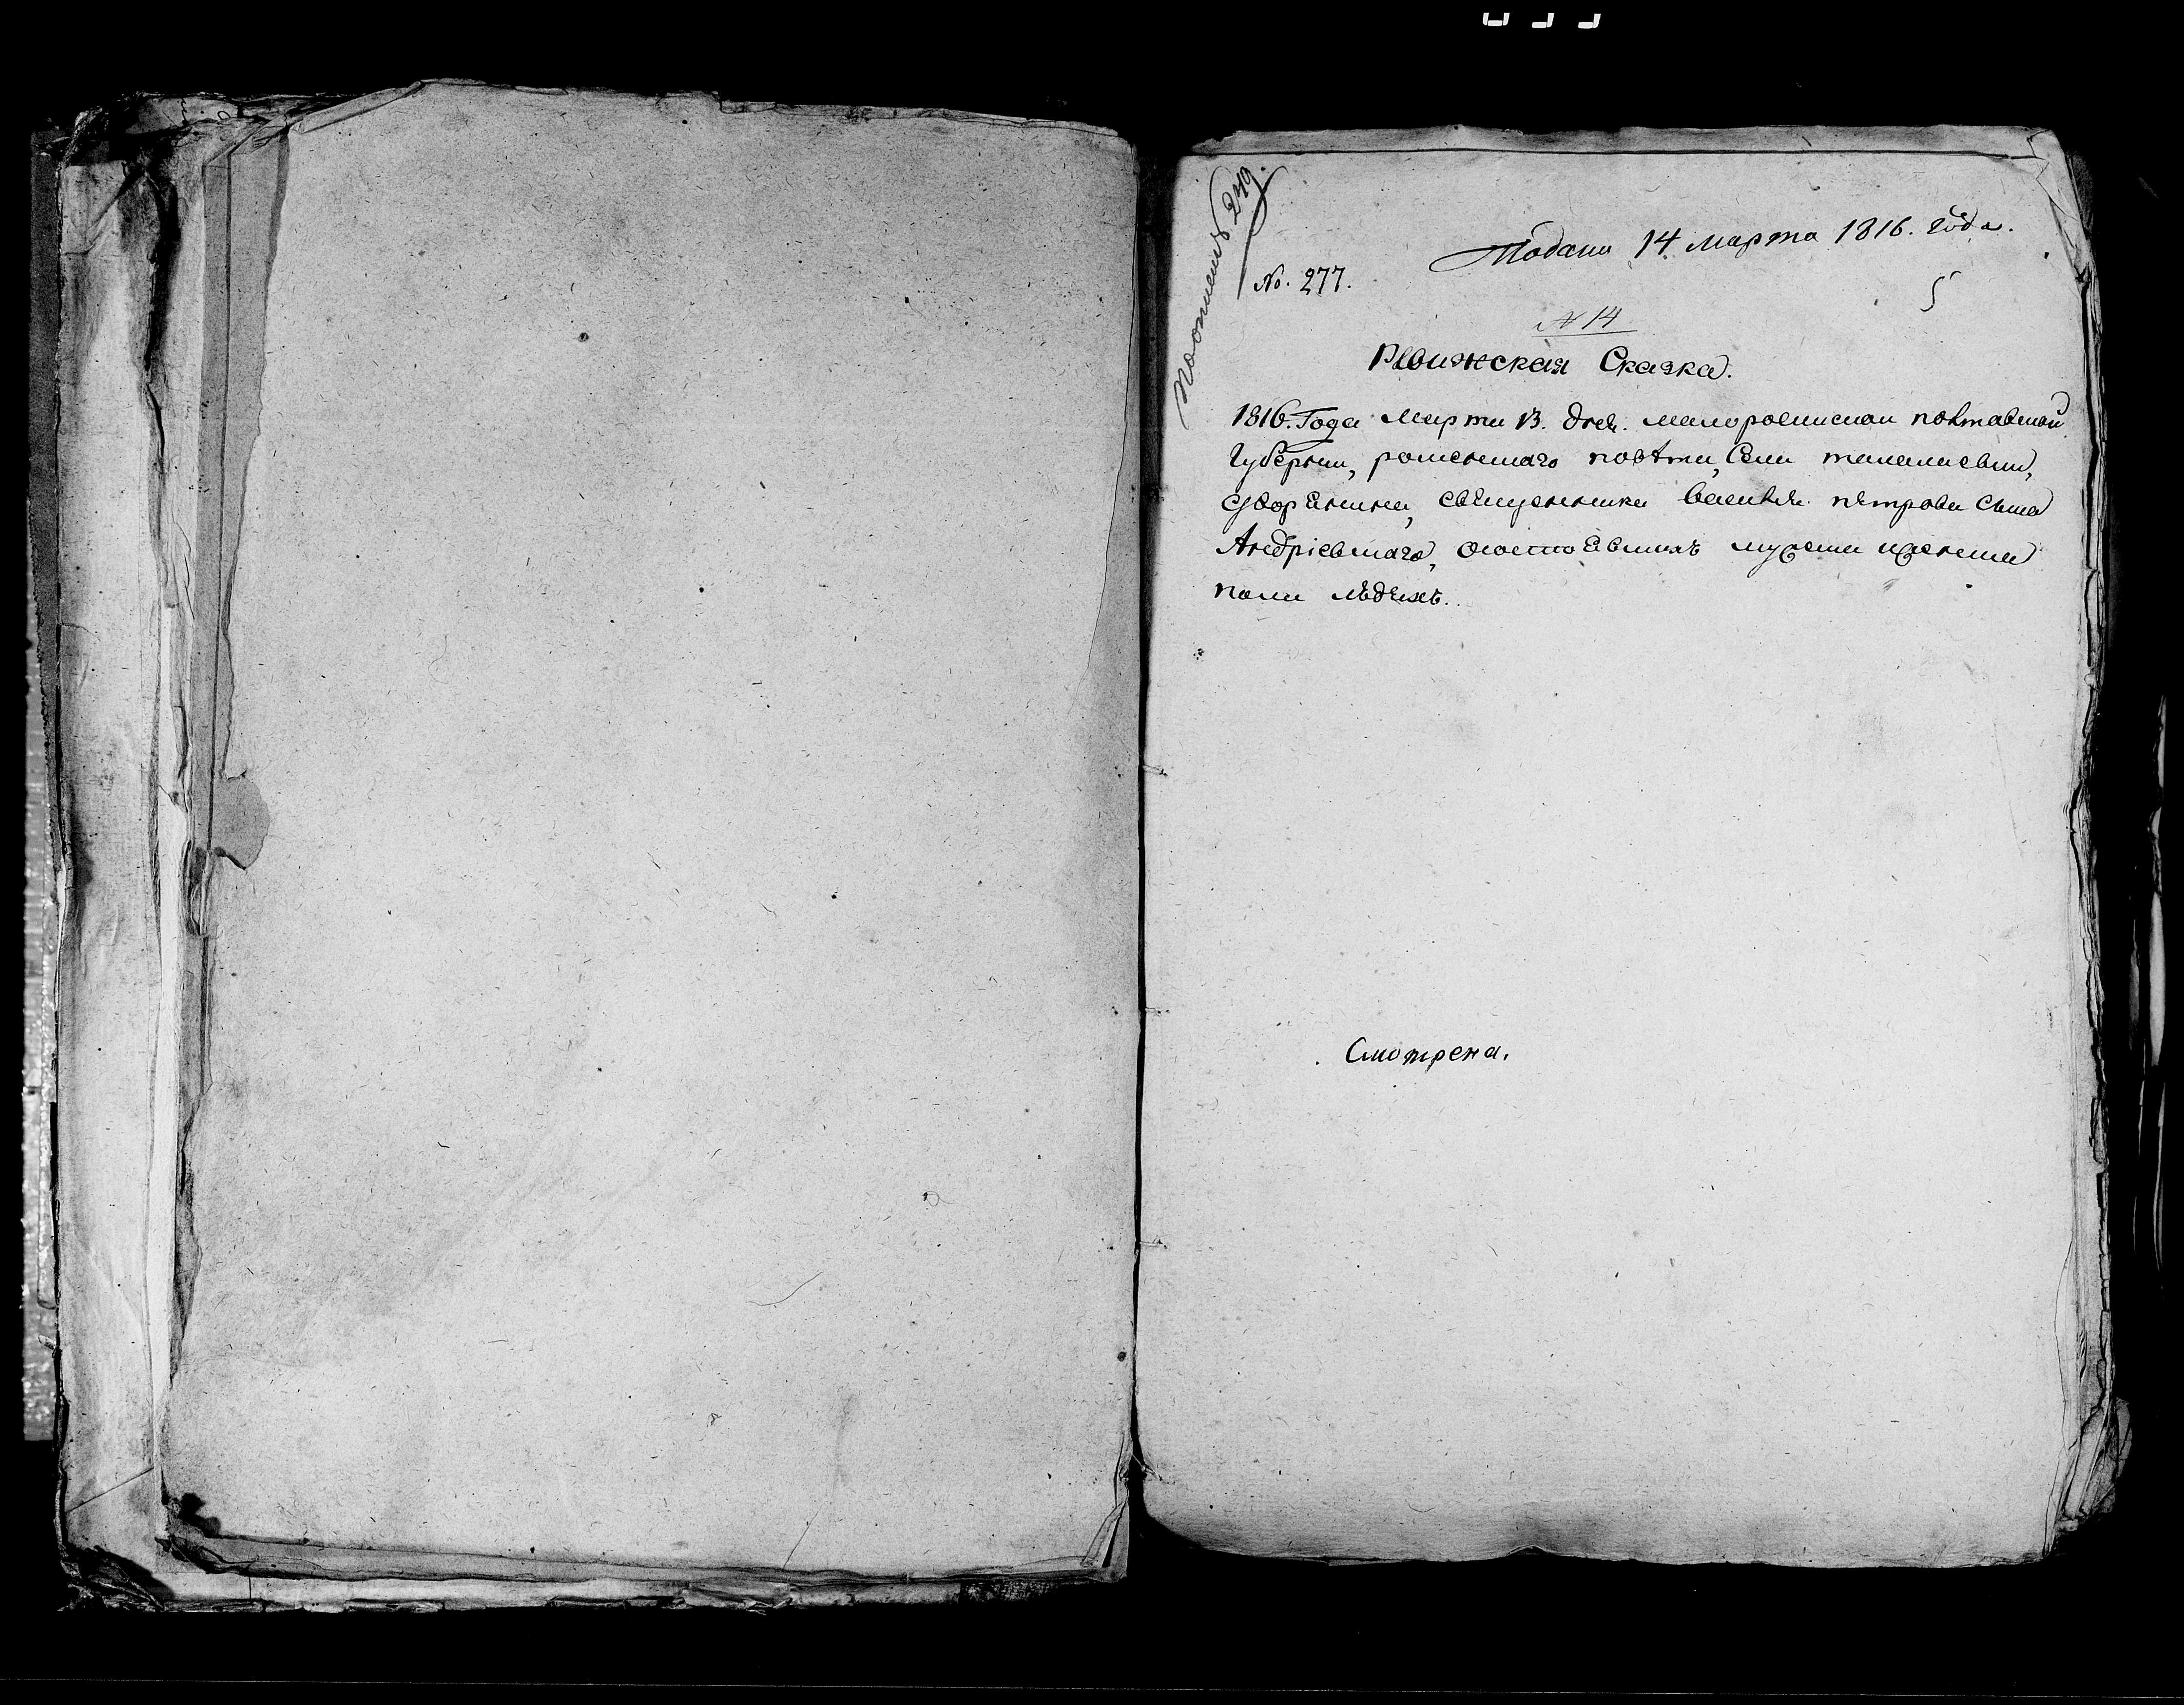 по описи 249.
Подана 14 марта 1816. года.
No. 277.
5
N 14
Ревижская Сказка.
1816. Года Марта 13. дня. малоросииской полтавской
Губернии, роменскаго повѣта, Села
дворянина, священника василия пѣтрова сына
Андріевскаго, осостоявшихъ мужеска иженска
пола людяхъ.
Смотрена.